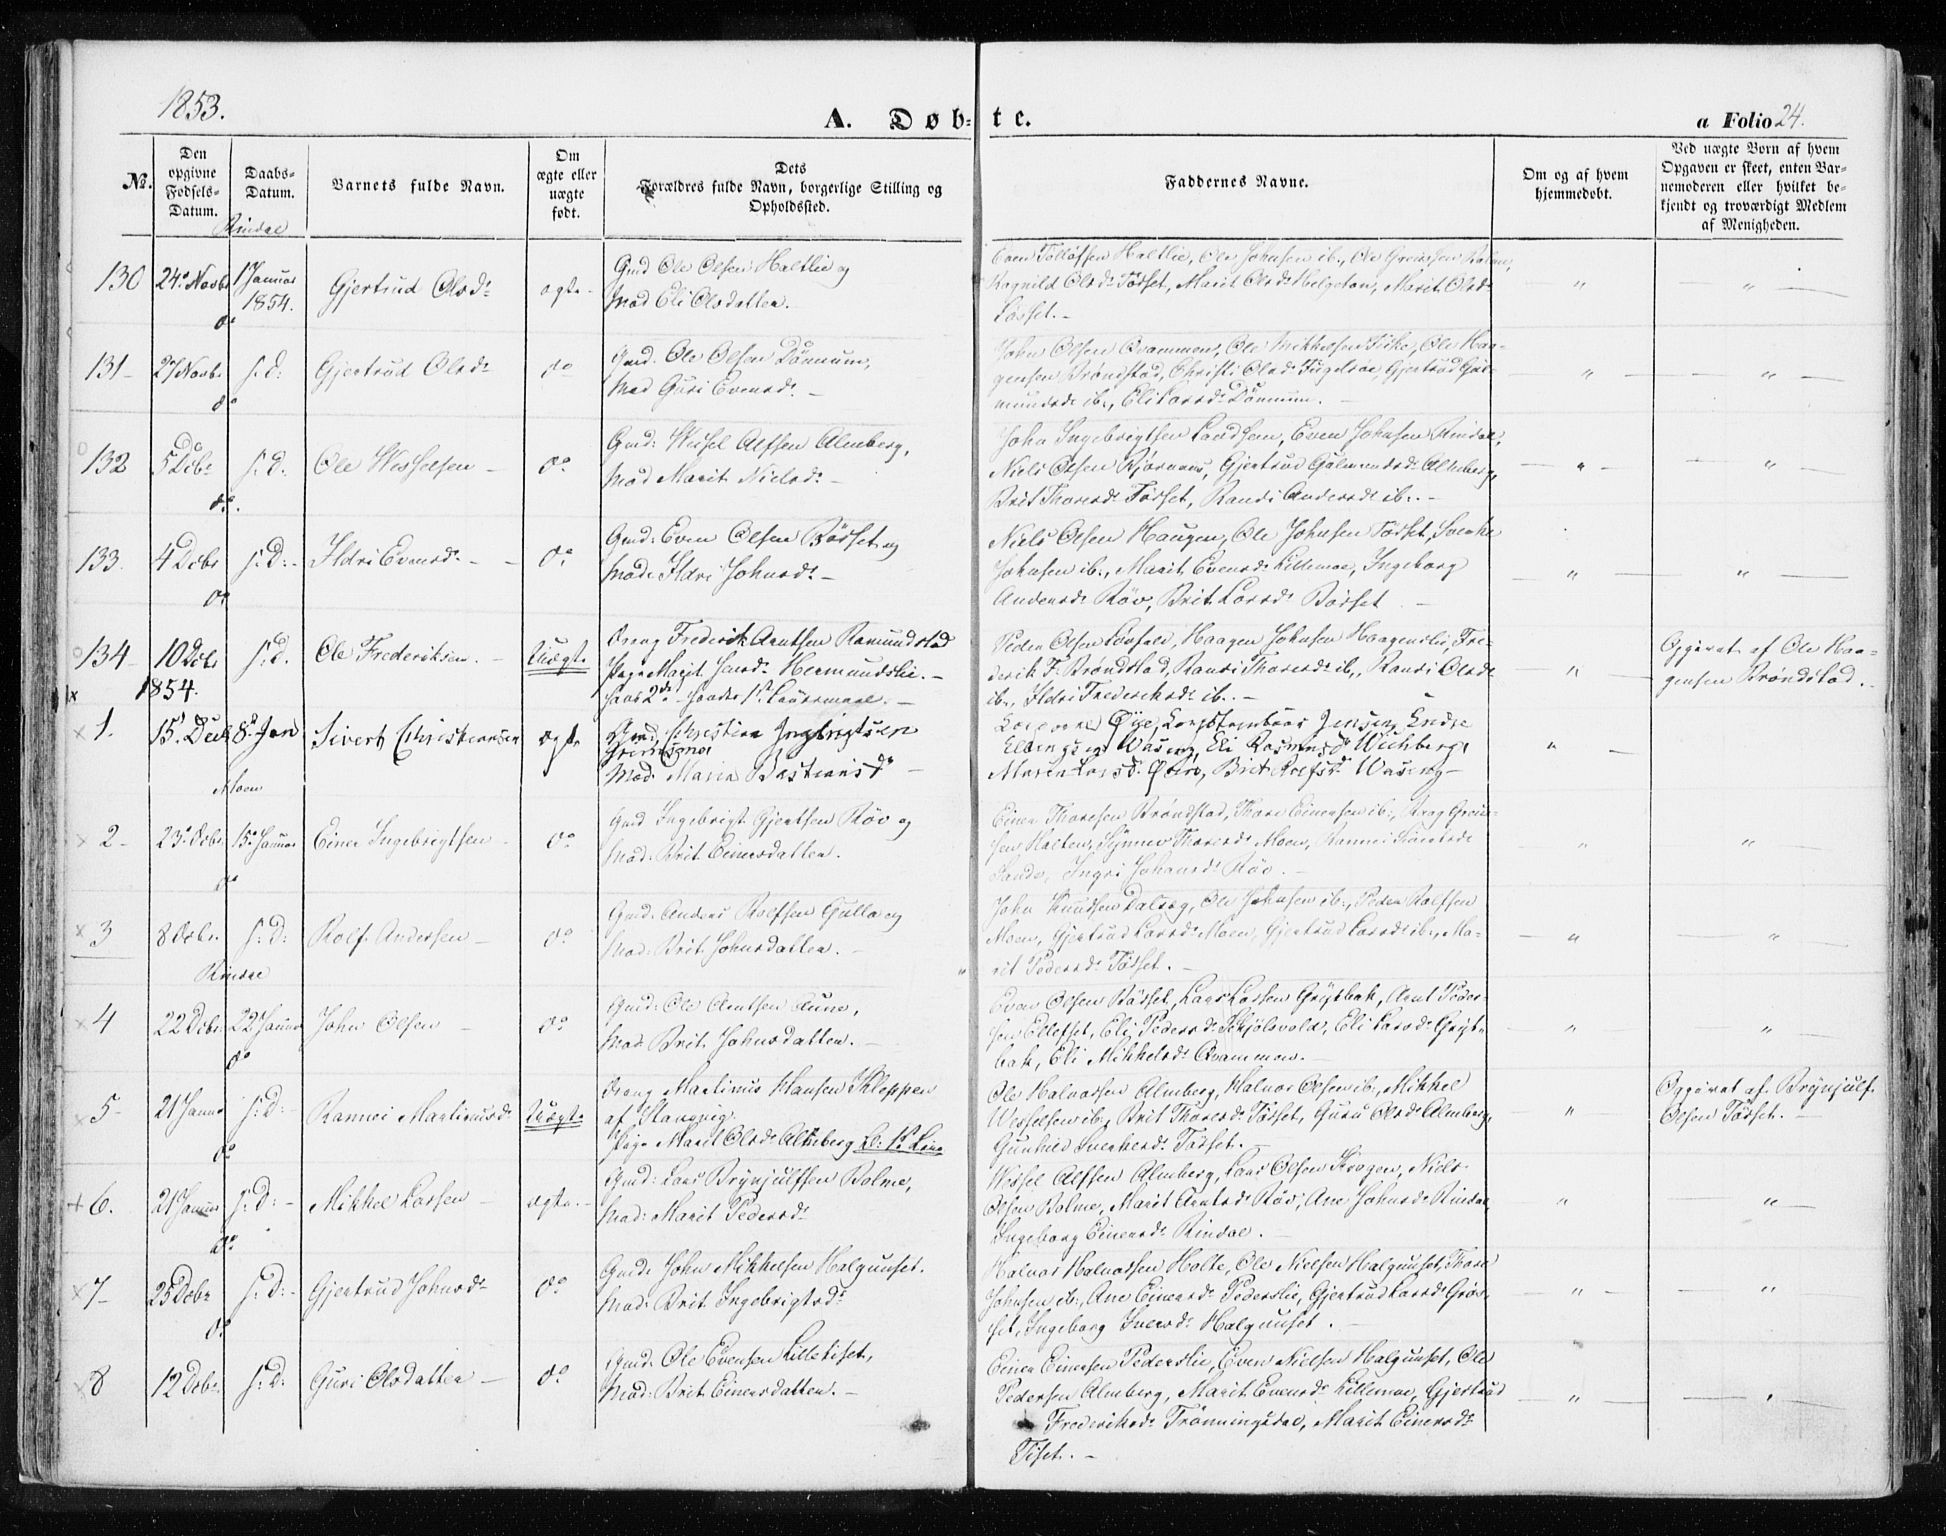 1853.
A. Døb-te.
a Folio 24.
No.
Den opgivne Fødsels-Datum.
Daabs-Datum.
Barnets fulde Navn.
Om ægte eller uægte født.
Dets Forældres fulde Navn, borgerlige Stilling og Opholdssted.
Faddernes Navne.
Om og af hvem hjemmedøbt.
Ved uægte Børn af hvem Opgaven er skeet, enten Barnemoderen eller hvilket bekjendt og troværdigt Medlem af Menigheden.
Rindal
130 24de Novbr 1 Januar 1854. Gjertrud Olsdr ægte
Gmd Ole Olsen Haltlie og
Mad Eli Olsdatter.
Even Tolløfsen Haltlie, Ole Johnsen ib.,
Ragnild Olsdr Tørset, Marit Olsdr Helgeton, Marit Olsdr
Løsset.
do
131 27 Novbr s. D: Gjertrud Olsdr do
Gmd. Ole Olsen Dønnum,
Mad Guri Evensdr.
John Olsen Qvammen, Ole Mikkelsen Fiske, Ole Haa-
gensen Brøndstad, Christi Olsdr Fugelsøe, Gjertrud Gul-
mundsdr ib., Eli Larsdr Dønnum.
do
132 5 Debr s. D. Ole Wesselsen do
Gmd: Wessel Alfsen Almberg,
Mad Marit Nielsdr
John Ingebrigtsen Landsem, Even Johnsen Rindal,
Niels Olsen Bjørnaas, Gjertrud Gulmundsdr Almberg,
Brit Thoresdr Tørset, Randi Andersdr ib.
do.
133. 4 Debr s. D: Ildri Evensdr do
Gmd: Even Olsen Børset og
Mad: Ildri Johnsdr
Niels Olsen Haugen, Ole Johnsen Tørset, Svenke
Johnsen ib., Marit Evensdr Lillemoe, Ingeborg
Andersdr Røv, Brit Larsdr Børset.
do
134 10 Debr s. D. Ole Frederiksen. Uægte
Dreng Frederik Arntsen Romundstad
Pige Marit Hermundslie.
Peder Olsen Haagen Johnsen Haagenslie, Fre-
derik F. Brøndstad, Randi Thoresdr ib., Randi Olsdr
ib., Ildri Frederiksdr ib.
Opgivet af Ole Haa-
gensen Brøndstad.
1854.
1. 15. Decb 8d Jan Sivert Christiansen ægte
Gmd. Christian Ingbrigtsen
Mad: Maria Bastiansdr
Øye, Jensen, Endre
Wasseng, Eli Rasmusdr Wichberg,
Maren Larsd. Brit Rolfsdr Waseng
Moen
2 23d Debr. 15de Januar Einer Ingebrigtsen do
Gmd Ingebrigt Gjertsen Røv og
Mad: Brit Einersdatter.
Einer Thoresen Brøndstad, Thore Einersen ib.,
sen Halten, Synnøv Thoresdr Moen,
Sande, Ingri Johansdr Røv.
do
3 8 Debr. s: D: Rolf Andersen do
Gmd: Anders Rolfsen Gulla og
Mad: Brit Johnsdatter.
John Knudsen Dalsæg, Ole Johnsen ib., Peder Rolfsen
Moen, Gjertrud Larsdr Moen, Gjertrud Larsdr ib., Ma-
rit Pedersdr Tørset.
Rindal
4 22 Debr. 22 Januar John Olsen do
Gmd: Ole Arntsen Aune,
Mad: Brit Johnsdatter.
Even Olsen Børset, Lars Larsen Grytbak, Arnt Peder-
sen Elleset, Eli Pedersdr Skjølsvold, Eli Larsdr Gryt-
bak, Eli Mikkelsdr Qvammen.
do
5 21 Januar s: D: Rannei Martinusdr Uægte
Drong Martinus Hansen Kleppen
af Stangvig
Pige Marit Olsdr Almberg
Ole Halvorsen Almberg, Halvor Olsen ib., Mikkel
Wesselsen ib., Brit Thoresdr Tørset, Guru Olsdr Almberg,
Gunhild Svenkesdr Tørset.
Opgivet af Brynjulf
Olsen Tørset.
do
6. 21 Januar s: D: Mikkel Larsen ægte.
Gmd: Lars Brynjulfsen Bolme,
Mad: Marit Pedersdr
Wessel Alfsen Almberg, Lars Olsen Krogen, Niels
Olsen Bolme, Marit Arntsdr Røv, Ane Johnsdr Rindal,
Ingeborg Einersdr Rindal.
do
7 25 Debr s. D: Gjertrud Johnsdr do
Gmd: John Mikkelsen Halgunset.
Mad: Brit Ingebrigtsdr
Halvor Halvorsen Holte, Ole Nielsen Halgunset, Thore
Johnsen ib., Ane Einersdr Pederslie, Gjertrud Larsdr Grøs-
set, Ingeborg Halgunset.
do
8 12 Debr. s: D: Guri Olsdatter do
Gmd: Ole Evensen Lilletiset,
Mad: Brit Einersdatter.
Einer Einersen Pederslie, Even Nielsen Halgunset, Ole
Pedersen Almberg, Marit Evensdr Lillemoe, Gjertrud
Frederiksdr Trønningsdal, Marit Einersdr
Tiset.